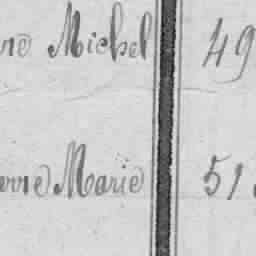 ne Michel 49
erre Marie 51